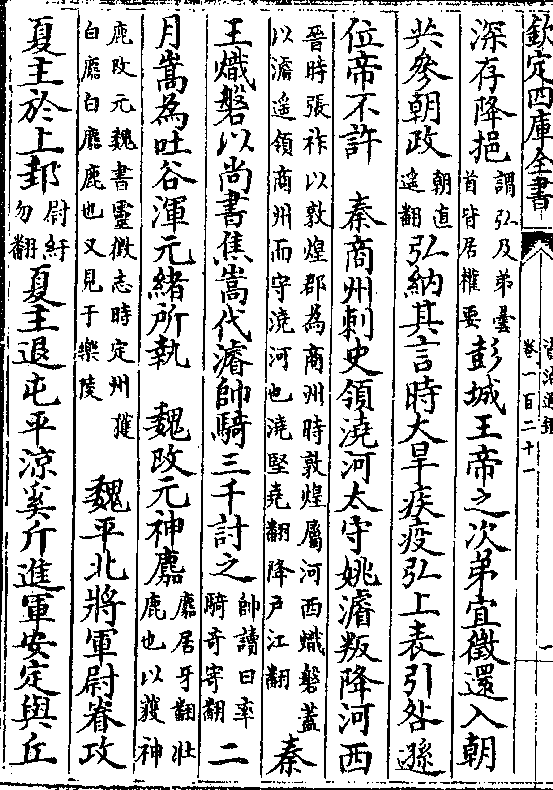 欽定四庫全書
資治通鑑
卷一百二十一
一
深存降挹謂弘及弟曇首皆居權要彭城王帝之次弟宜徵還入朝
共參朝政朝直遥翻弘納其言時大旱疾疫弘上表引咎遜
位帝不許　秦商州刺史領澆河太守姚濬叛降河西
晉時張祚以敦煌郡為商州時敦煌屬河西熾磐蓋以濬遥領商州而守澆河也澆堅堯翻降户江翻　秦
王熾磐以尚書焦嵩代濬帥騎三千討之帥讀曰率騎奇寄翻　二
月嵩為吐谷渾元緒所執　魏改元神䴥䴥居牙翻壯鹿也以獲神
鹿改元魏書靈徵志時定州獲白䴥白䴥鹿也又見于樂陵　魏平北將軍尉眷攻
夏主於上邽尉紆勿翻夏主退屯平涼奚斤進軍安定與丘